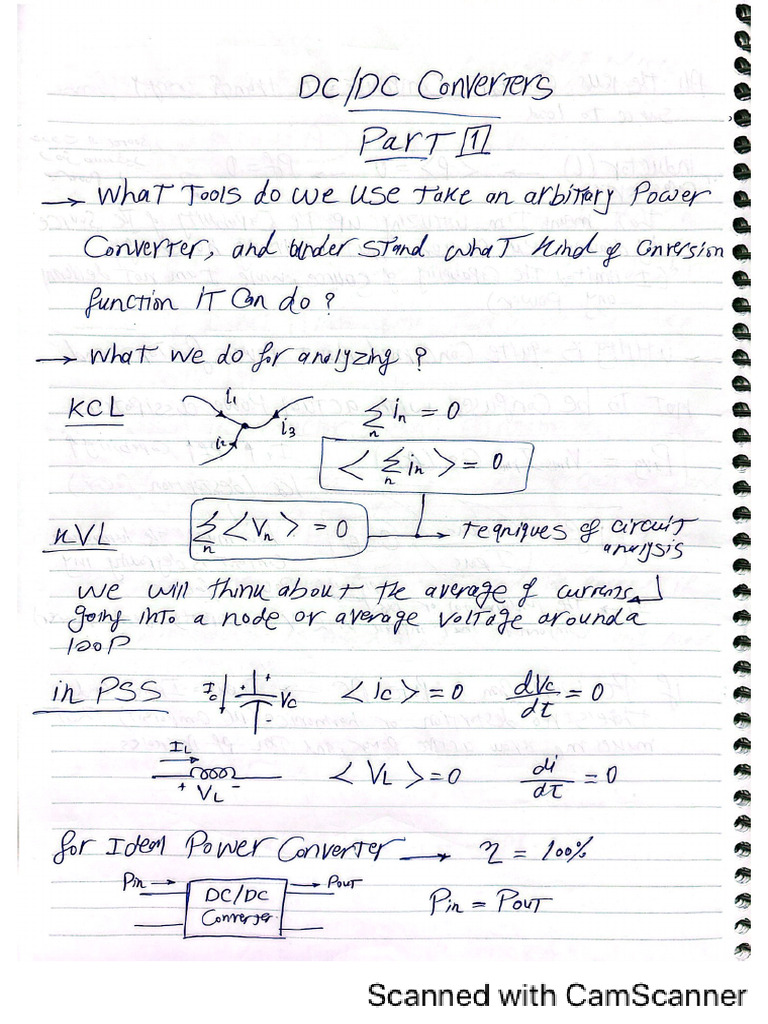 DC/DC Converters
Part 1
→ What Tools do we use take an arbitrary Power
Converter, and understand what kind of Conversion
function it Can do ?
→ What we do for analyzing ?
KCL i1 i2 i3 ∑n in = 0
< ∑n in > = 0
KVL ∑n <Vn> = 0 → teqniques of circuit
analysis
we will think about the average of currents
going into a node or average voltage around a
loop
in PSS Ic + + Vc - < ic > = 0 dVc/dt = 0
IL + VL - < VL > = 0 di/dt = 0
for Ideal Power Converter → η = 100%
Pin → DC/DC → Pout
Converter Pin = Pout
Scanned with CamScanner